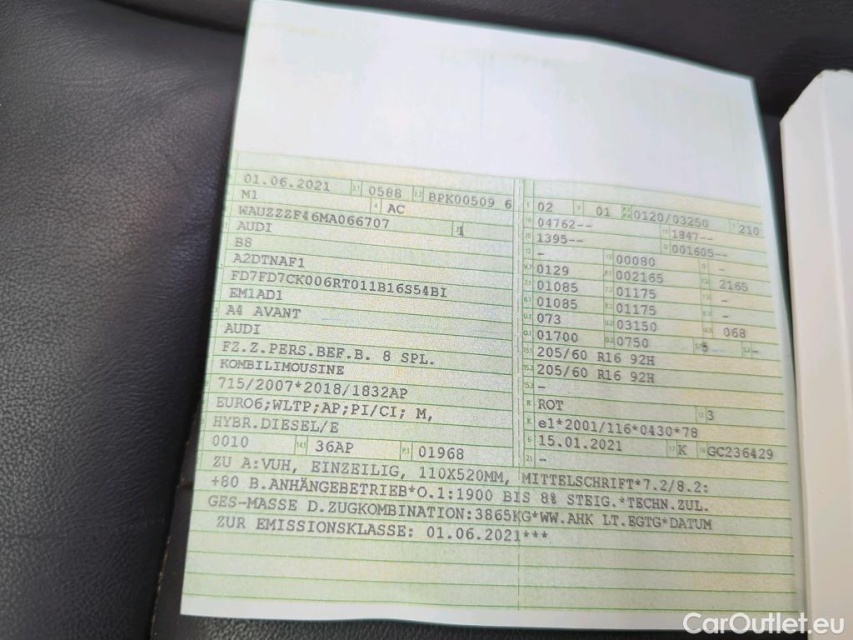 01.06.2021 0588 BPK00509 6
M1 AC
WAUZZZF46MA066707
AUDI
B8
A2DTNAF1
FD7FD7CK006RT011B16S54BI
EM1AD1
A4 AVANT
AUDI
FZ.Z.PERS.BEF.B. 8 SPL.
KOMBILIMOUSINE
715/2007*2018/1832AP
EURO6;WLTP;AP;PI/CI; M,
HYBR.DIESEL/E
0010 36AP 01968
02 01 0120/03250 210
04762-- 1847--
1395-- 001605--
- 00080 -
0129 002165 2165
01085 01175 -
01085 01175 -
073 03150 068
01700 0750 5 -
205/60 R16 92H
205/60 R16 92H
-
ROT 3
e1*2001/116*0430*78
15.01.2021 K GC236429
-
ZU A:VUH, EINZEILIG, 110X520MM, MITTELSCHRIFT*7.2/8.2:
+80 B.ANHÄNGEBETRIEB*O.1:1900 BIS 8% STEIG.*TECHN.ZUL.
GES-MASSE D.ZUGKOMBINATION:3865KG*WW.AHK LT.EGTG*DATUM
ZUR EMISSIONSKLASSE: 01.06.2021***
CarOutlet.eu